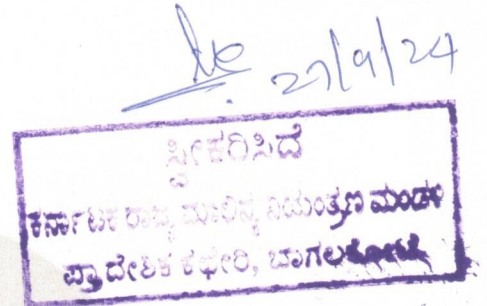 27/9/24
ಸ್ವೀಕರಿಸಿದೆ
ಕರ್ನಾಟಕ ರಾಜ್ಯ ಮಾಲಿನ್ಯ ನಿಯಂತ್ರಣ ಮಂಡಳಿ
ಪ್ರಾದೇಶಿಕ ಕಛೇರಿ, ಬಾಗಲಕೋಟೆ